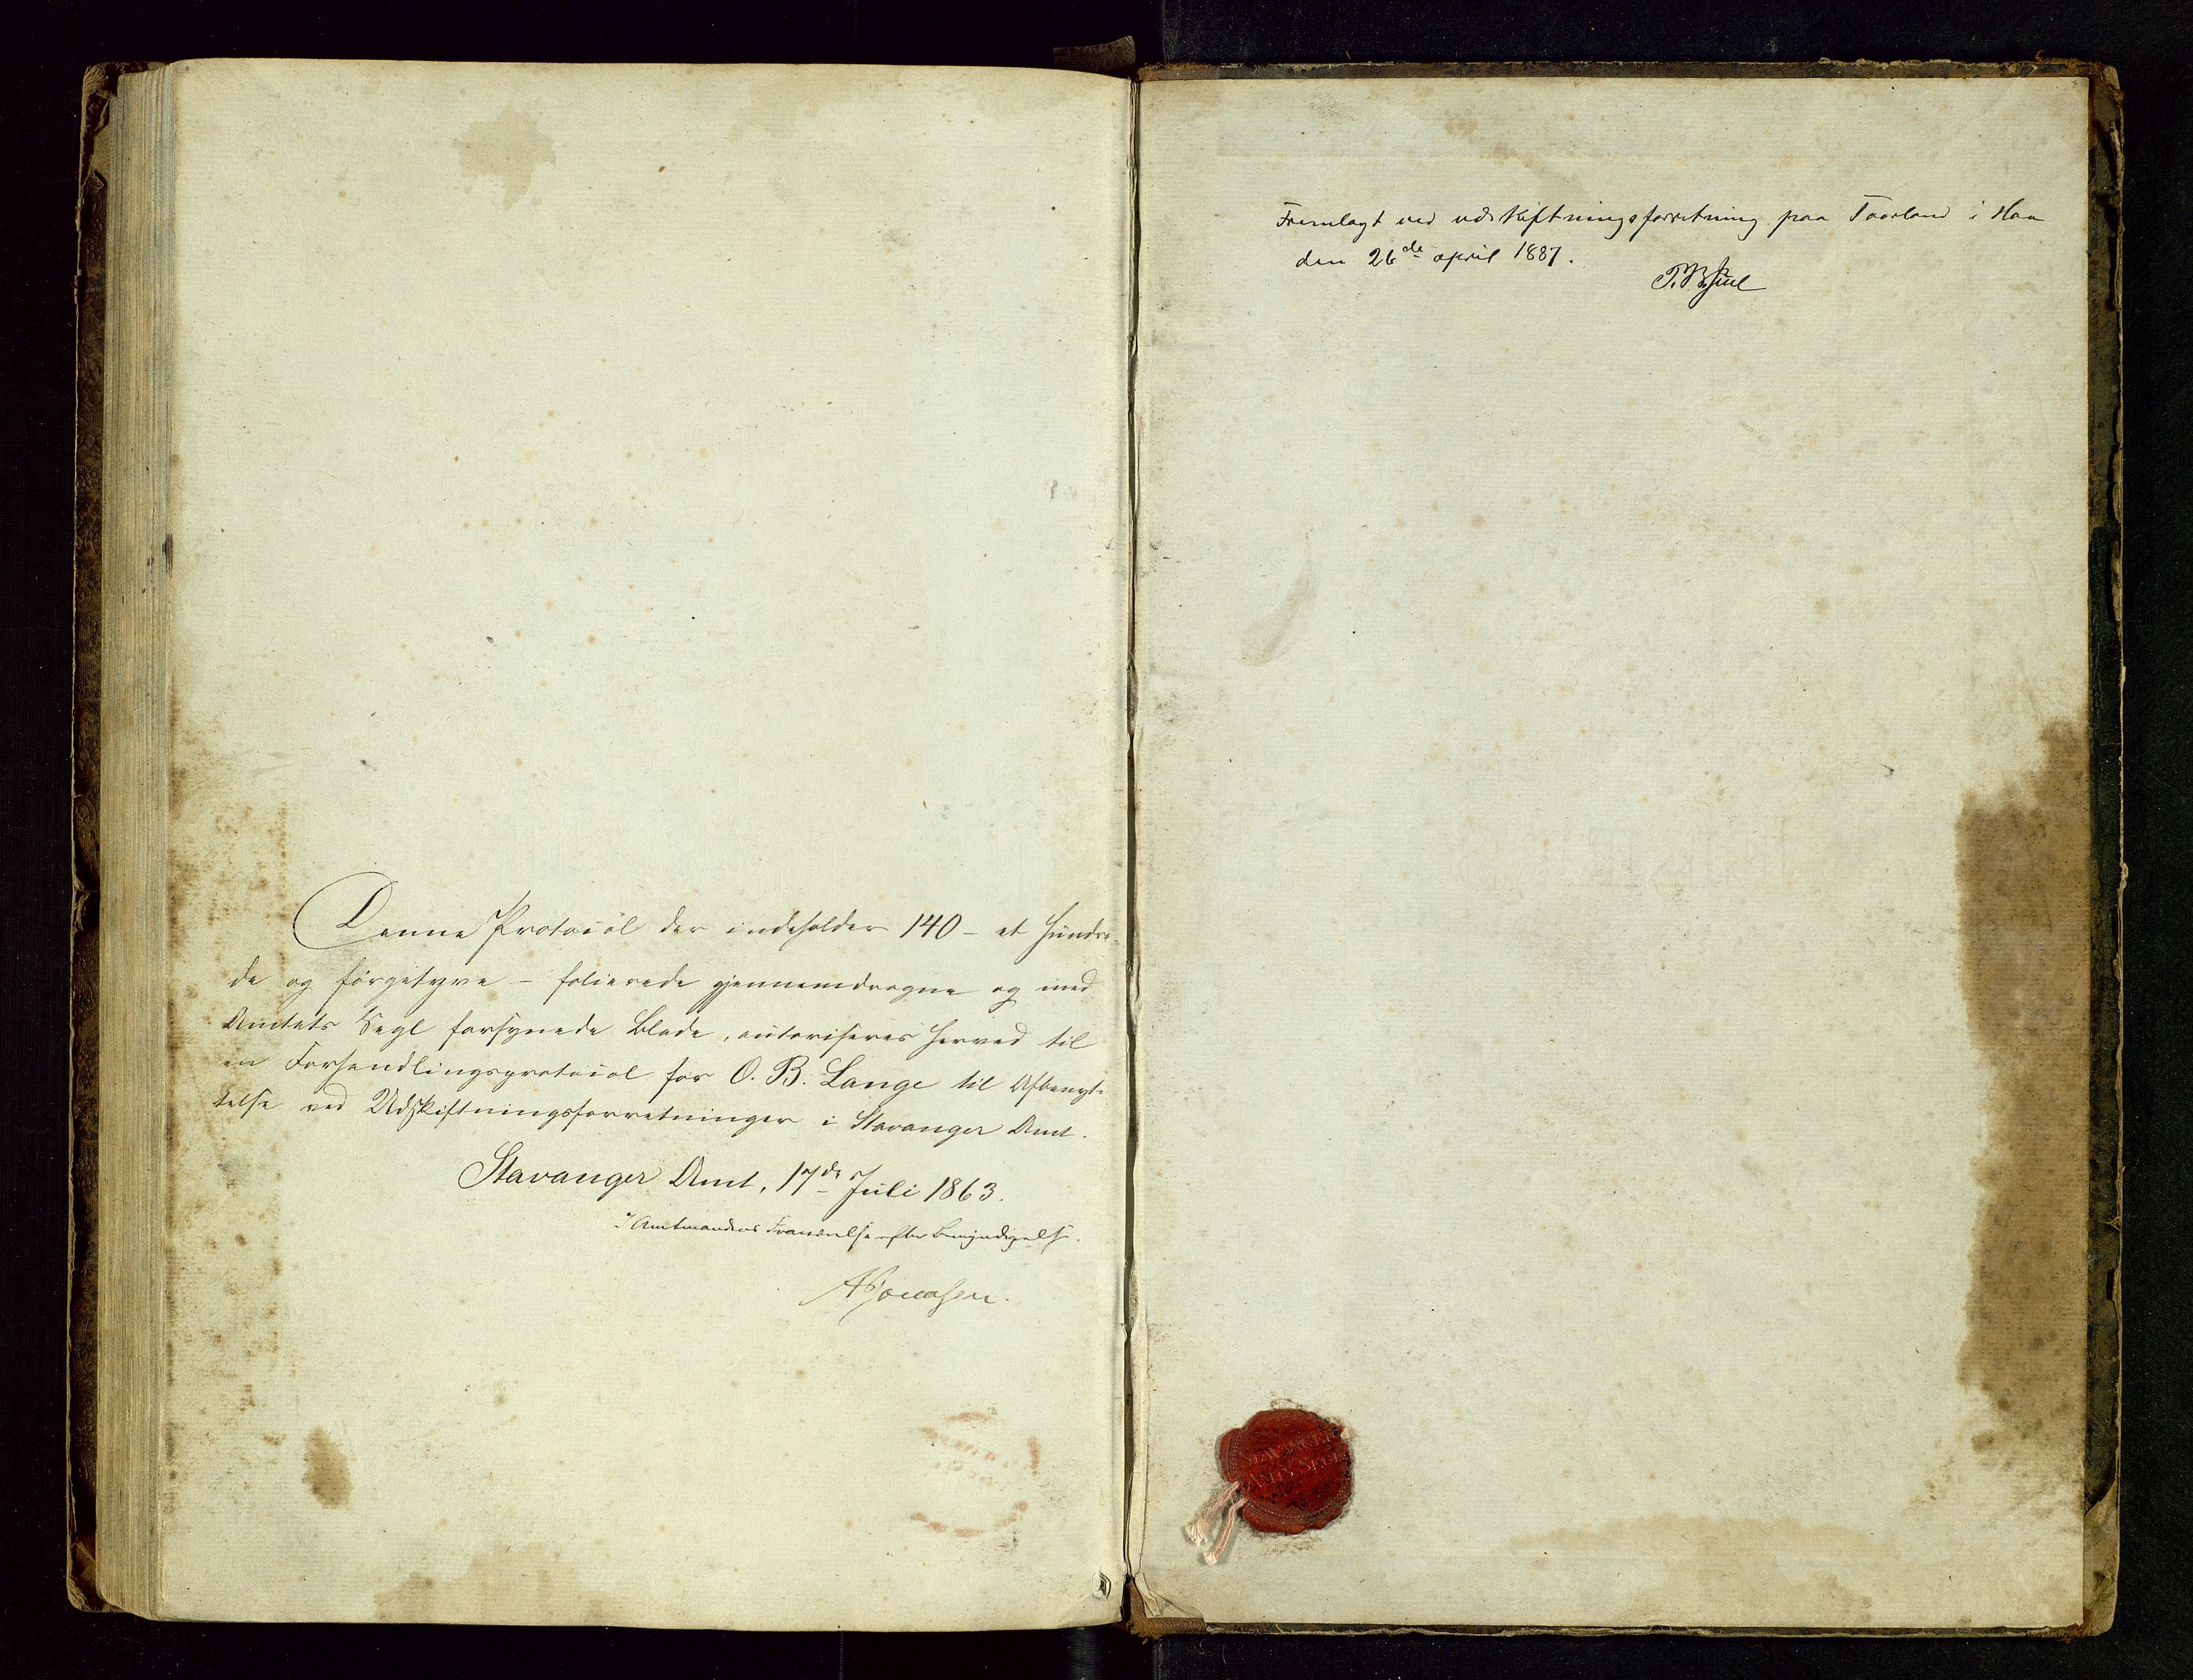 Denne Protocol der indeholder 140 - et Hundre-
de og førgetyve - folierede gjennemdragne og med
Amtets Segl forsynede Blade, autoriseres herved til
en Forhandlingsprotocol for O. B. Lange til Afbenyt-
telse ved Udskiftningsforretninger i Stavanger Amt.
Stavanger Amt, 17de Juli 1863.
I Amtmandens Fraværelse efter Bemyndigelse.
Fremlagt ved udskiftningsforretning paa Taarland i Haa
den 26de april 1887.